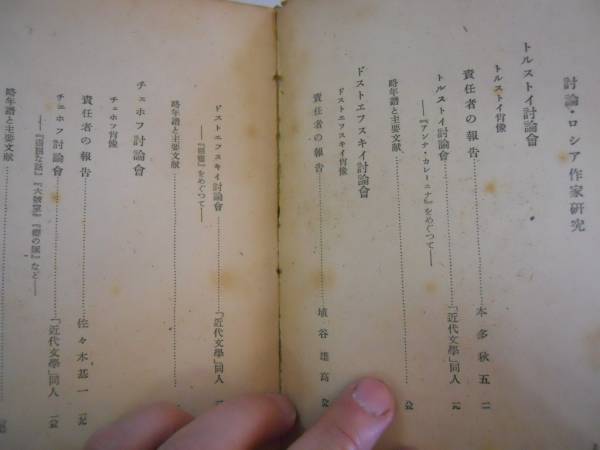 討論・ロシア作家研究
トルストイ討論會
トルストイ肖像
責任者の報告…………本多秋五
トルストイ討論會…………「近代文學」同人
――『アンナ・カレーニナ』をめぐつて――
略年譜と主要文献…………
ドストエフスキイ討論會
ドストエフスキイ肖像
責任者の報告…………埴谷雄高
ドストエフスキイ討論會…………「近代文學」同人
――『惡靈』をめぐつて――
略年譜と主要文献…………
チェホフ討論會
チェホフ肖像
責任者の報告…………佐々木基一
チェホフ討論會…………「近代文學」同人
――『退屈な話』『六號室』『櫻の園』など――
略年譜と主要文献…………